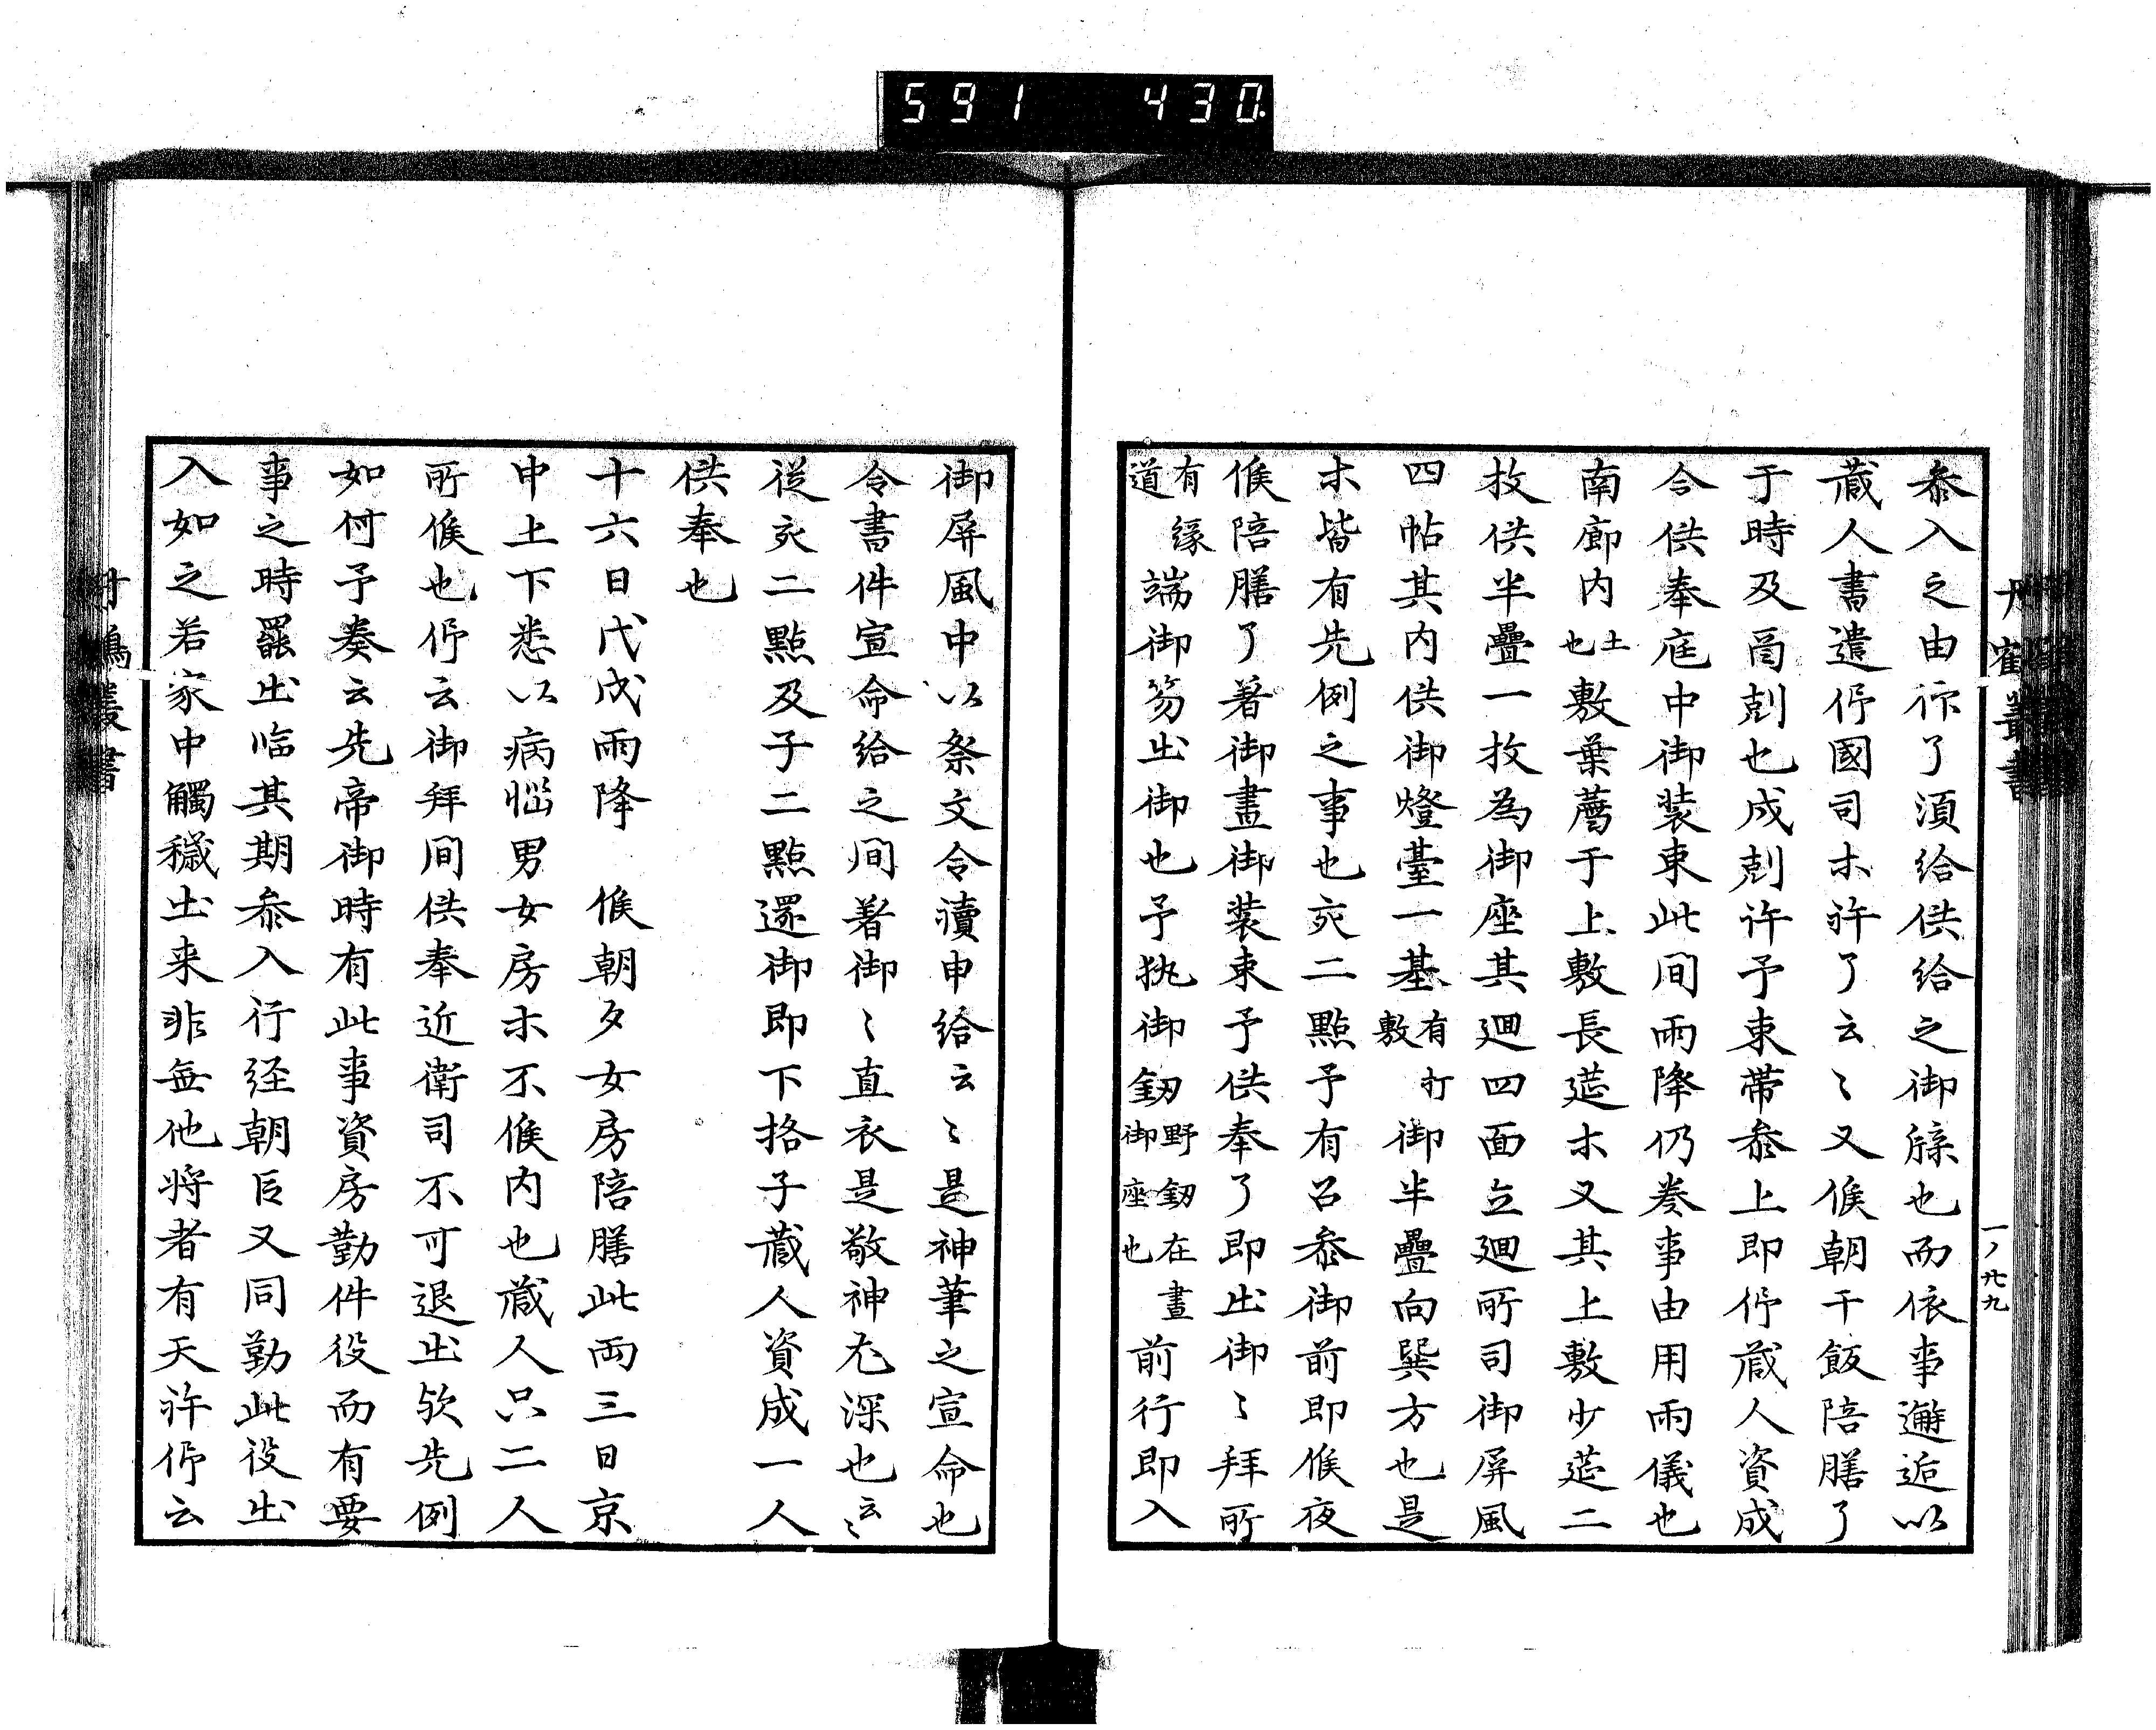 591 430
丹鶴叢書
一ノ廿九
参入之由仰了須給供給之御牒也而依事邂逅以
蔵人書遣仰國司木許了云〻又候朝干飯陪膳了
于時及酉剋也戌剋許予束帯参上即仰蔵人資成
令供奉庭中御装束此間雨降仍奏事由用雨儀也
南廊内土也敷葉薦于上敷長莚木又其上敷少莚二
枚供半疊一枚為御座其廻四面立廻所司御屏風
四帖其内供御燈臺一基有打敷御半疊向巽方也是
木皆有先例之事也亥二點予有召参御前即候夜
候陪膳了着御晝御装束予供奉了即出御〻拜所
有縁道端御笏出御也予執御釼野釼在晝御座也前行即入
御屏風中以祭文令讀申給云〻是神筆之宣命也
令書件宣命給之間着御〻直衣是敬神尤深也云〻
従亥二點及子二點還御即下格子蔵人資成一人
供奉也
十六日戊戌雨降 候朝夕女房陪膳此両三日京
中土下悉以病惱男女房木不候内也蔵人只二人
所候也仰云御拜間供奉近衛司不可退出欤先例
如何予奏云先帝御時有此事資房勤件役而有要
事之時罷出臨其期参入行経朝臣又同勤此役出
入如之若家中觸穢出来非無他将者有天許仰云
丹鶴叢書